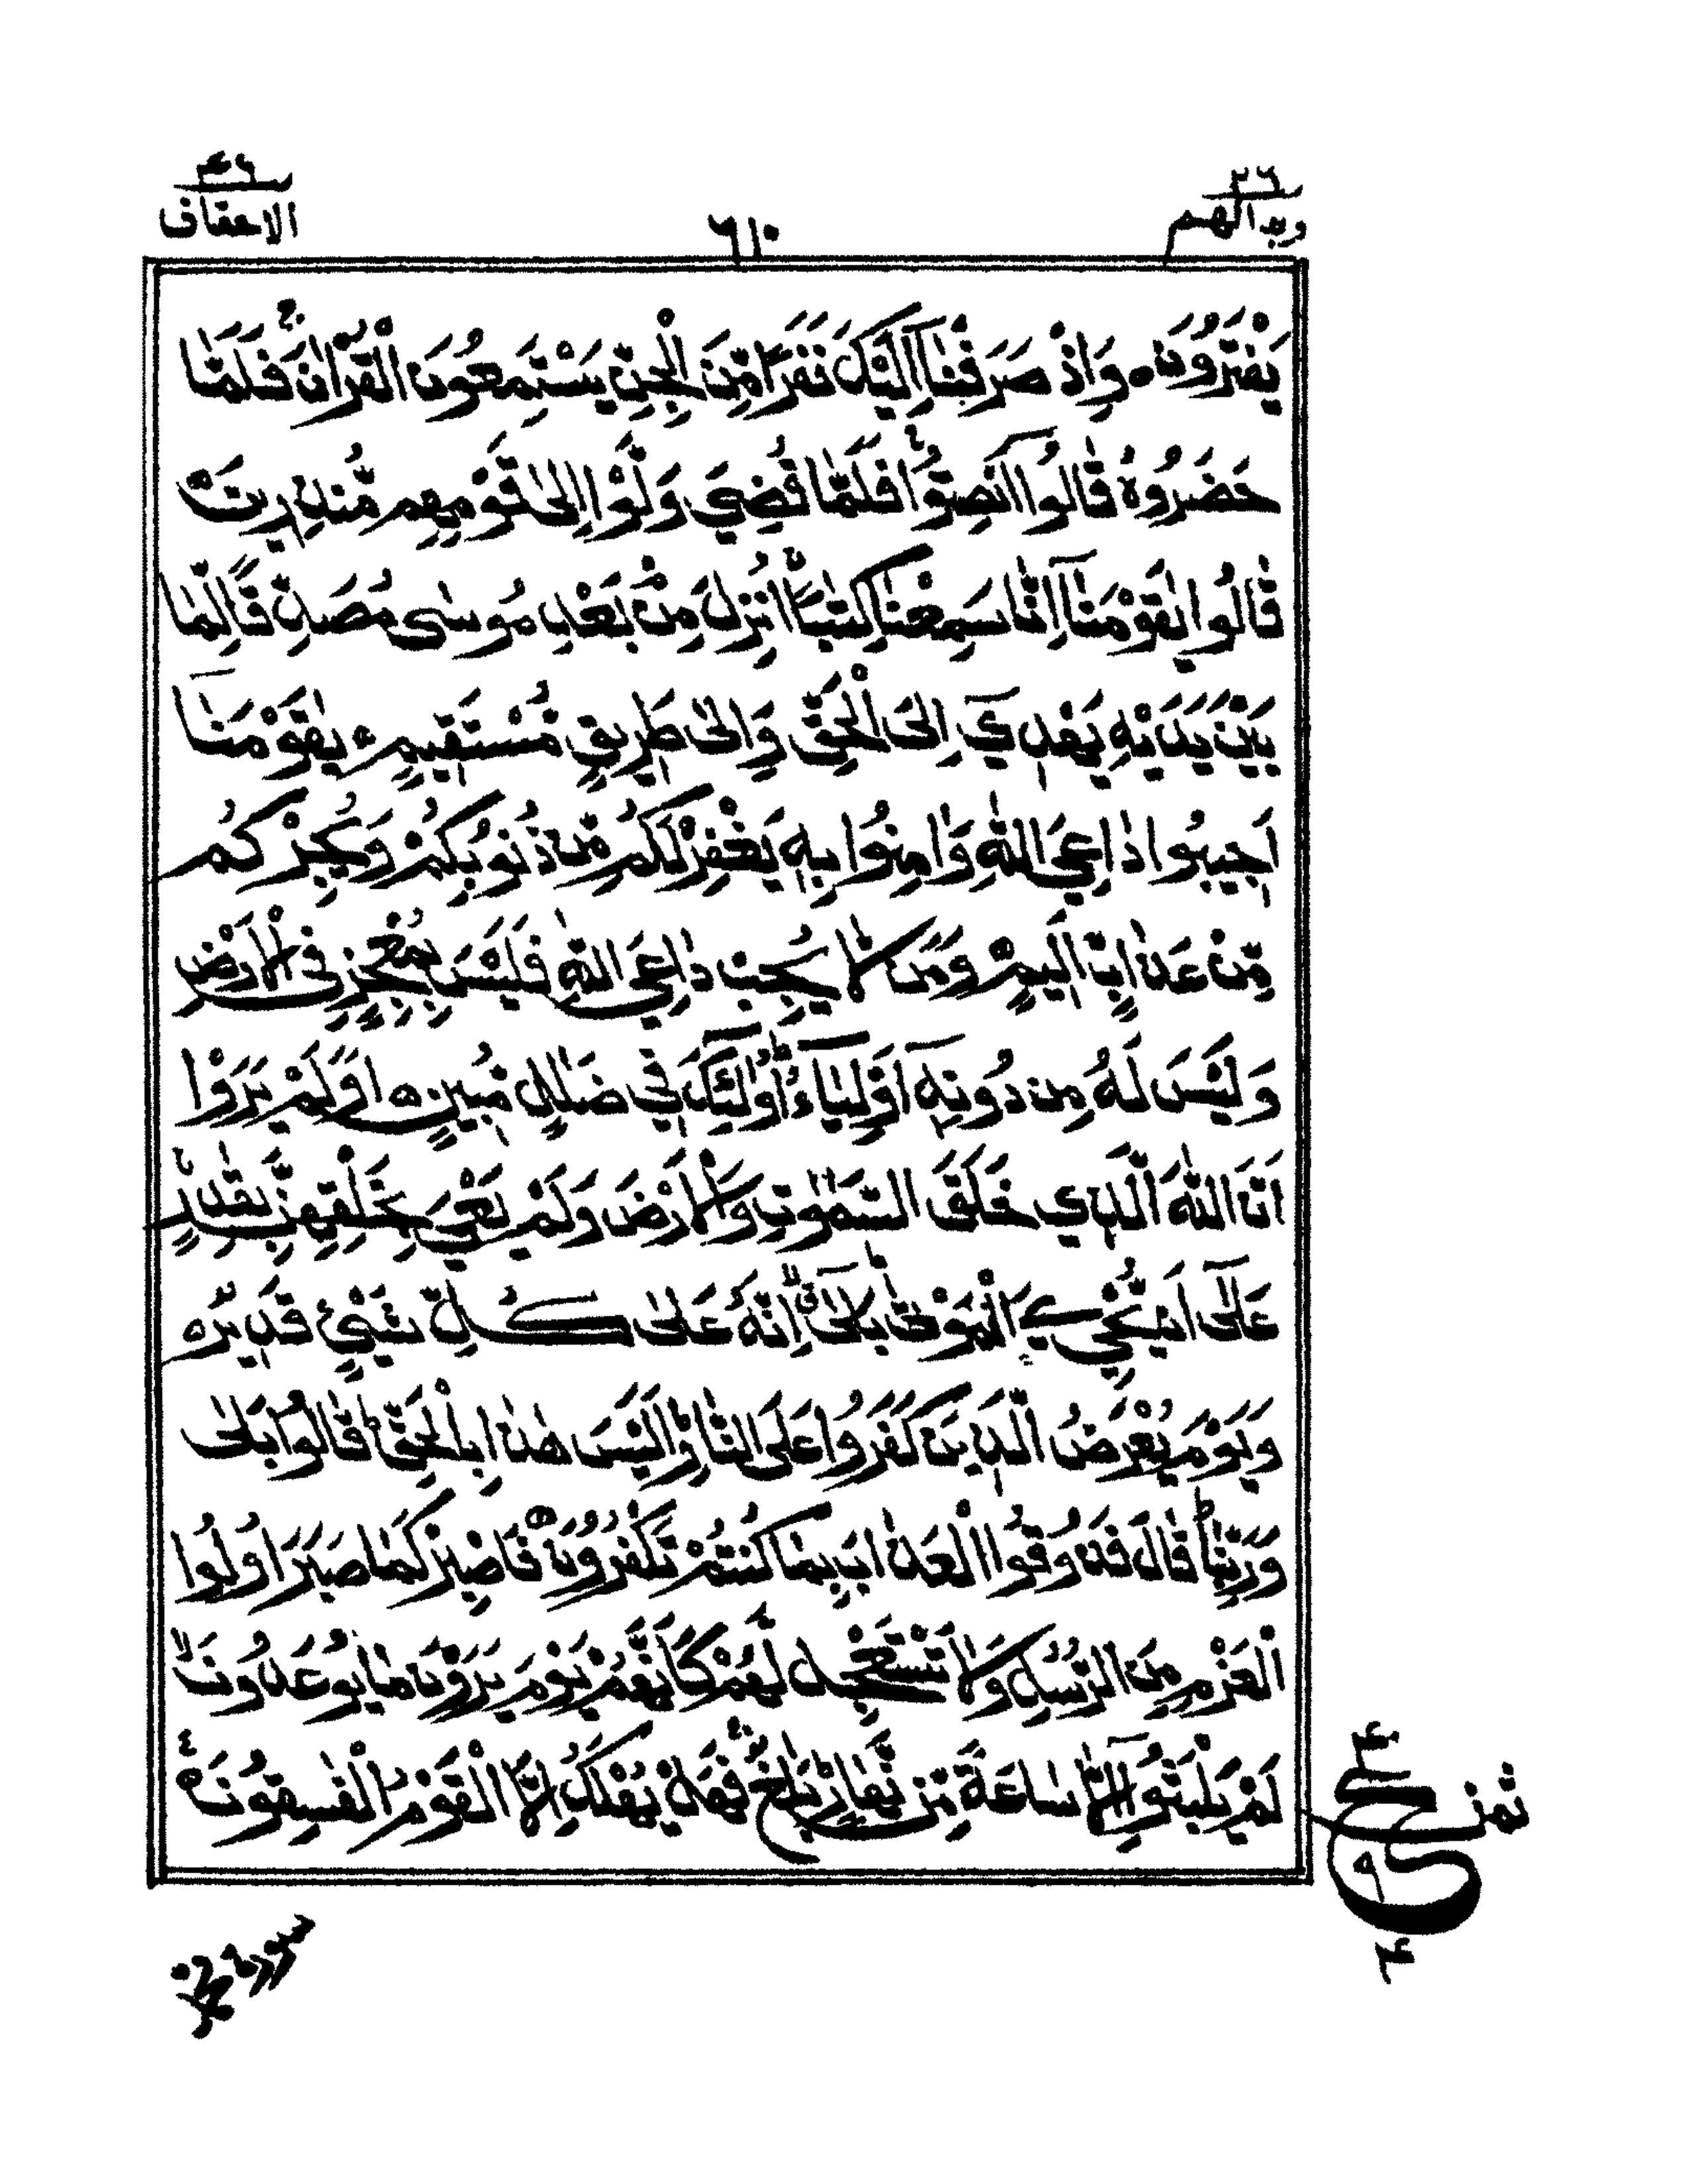 ٤٦ ٢٦
الاحقاف ٦١٠ وبدالهم
يَفْتَرُوْنَ۝ وَاِذْ صَرَفْنَاۤ اِلَيْكَ نَفَرًا مِّنَ الْجِنِّ يَسْتَمِعُوْنَ الْقُرْاٰنَ ۚ فَلَمَّا
حَضَرُوْهُ قَالُوْۤا اَنْصِتُوْا ۚ فَلَمَّا قُضِيَ وَلَّوْا اِلٰى قَوْمِهِمْ مُّنْذِرِيْنَ
قَالُوْا يٰقَوْمَنَاۤ اِنَّا سَمِعْنَا كِتٰبًا اُنْزِلَ مِنْۢ بَعْدِ مُوْسٰى مُصَدِّقًا لِّمَا
بَيْنَ يَدَيْهِ يَهْدِيْۤ اِلَى الْحَقِّ وَاِلٰى طَرِيْقٍ مُّسْتَقِيْمٍ۝ يٰقَوْمَنَاۤ
اَجِيْبُوْا دَاعِيَ اللّٰهِ وَاٰمِنُوْا بِهٖ يَغْفِرْ لَكُمْ مِّنْ ذُنُوْبِكُمْ وَيُجِرْكُمْ
مِّنْ عَذَابٍ اَلِيْمٍ۝ وَمَنْ لَّا يُجِبْ دَاعِيَ اللّٰهِ فَلَيْسَ بِمُعْجِزٍ فِى الْاَرْضِ
وَلَيْسَ لَهٗ مِنْ دُوْنِهٖۤ اَوْلِيَآءُ ؕ اُولٰٓئِكَ فِيْ ضَلٰلٍ مُّبِيْنٍ۝ اَوَلَمْ يَرَوْا
اَنَّ اللّٰهَ الَّذِيْ خَلَقَ السَّمٰوٰتِ وَالْاَرْضَ وَلَمْ يَعْيَ بِخَلْقِهِنَّ بِقٰدِرٍ
عَلٰۤى اَنْ يُّحْيِۦَ الْمَوْتٰى ؕ بَلٰۤى اِنَّهٗ عَلٰى كُلِّ شَيْءٍ قَدِيْرٌ۝
وَيَوْمَ يُعْرَضُ الَّذِيْنَ كَفَرُوْا عَلَى النَّارِ ؕ اَلَيْسَ هٰذَا بِالْحَقِّ ؕ قَالُوْا بَلٰى
وَرَبِّنَا ؕ قَالَ فَذُوْقُوا الْعَذَابَ بِمَا كُنْتُمْ تَكْفُرُوْنَ۝ فَاصْبِرْ كَمَا صَبَرَ اُولُوا
الْعَزْمِ مِنَ الرُّسُلِ وَلَا تَسْتَعْجِلْ لَّهُمْ ؕ كَاَنَّهُمْ يَوْمَ يَرَوْنَ مَا يُوْعَدُوْنَ ۙ
لَمْ يَلْبَثُوْۤا اِلَّا سَاعَةً مِّنْ نَّهَارٍ ؕ بَلٰغٌ ۚ فَهَلْ يُهْلَكُ اِلَّا الْقَوْمُ الْفٰسِقُوْنَ۝
ثمن
ع
٩
٤